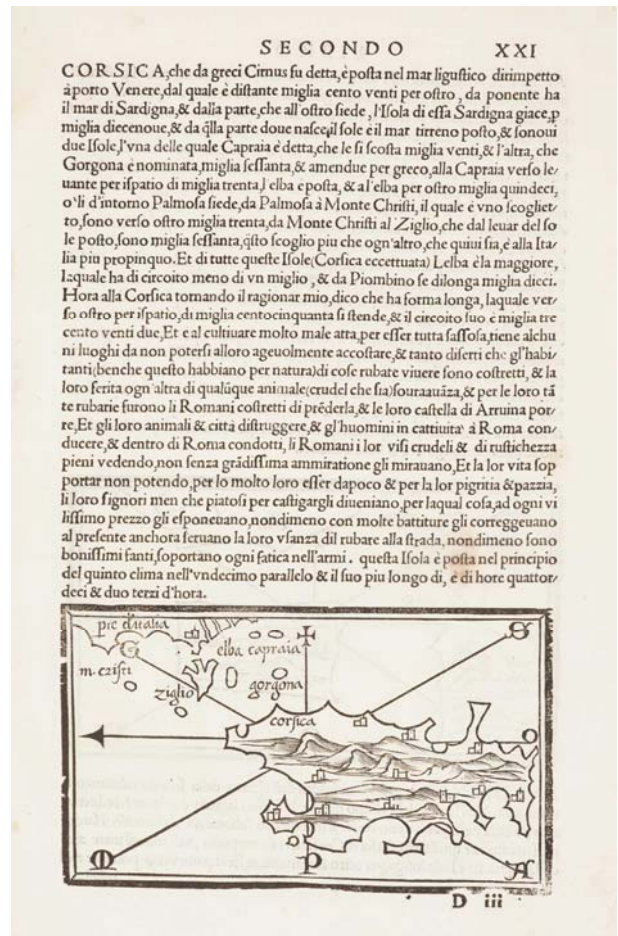 SECONDO XXI
CORSICA, che da greci Cirnus fu detta, è posta nel mar ligustico dirimpetto
à porto Venere, dal quale è distante miglia cento venti per ostro, da ponente ha
il mar di Sardigna, & dalla parte, che all'ostro siede, l'Isola di essa Sardigna giace, p
miglia diecenoue, & da q̃lla parte doue nasce, il sole è il mar tirreno posto, & sonoui
due Isole, l'vna delle quale Capraia è detta, che le si scosta miglia venti, & l'altra, che
Gorgona è nominata, miglia sessanta, & amendue per greco, alla Capraia verso le/
uante per ispatio di miglia trenta, l elba e posta, & al elba per ostro miglia quindeci,
o'li d'intorno Palmosa siede, da Palmosa à Monte Christi, il quale è vno scogliet/
to, sono verso ostro miglia trenta, da Monte Christi al Ziglio, che dal leuar del so
le posto, sono miglia sessanta, q̃sto scoglio piu che ogn'altro, che quiui sia, è alla Ita/
lia piu propinquo. Et di tutte queste Isole (Corsica eccettuata) Lelba è la maggiore,
laquale ha di circoito meno di vn miglio, & da Piombino se dilonga miglia dieci.
Hora alla Corsica tornando il ragionar mio, dico che ha forma longa, laquale ver/
so ostro per ispatio, di miglia centocinquanta si stende, & il circoito suo è miglia tre
cento venti due, Et e al cultiuare molto male atta, per esser tutta sassosa, tiene alchu
ni luoghi da non potersi alloro ageuolmente accostare, & tanto diserti che gl'habi/
tanti (benche questo habbiano per natura) di cose rubate viuere sono costretti, & la
loro ferita ogn'altra di qualũque animale (crudel che sia) souraauãza, & per le loro tã
te rubarie furono li Romani costretti di prẽderla, & le loro castella di Arruina por/
re, Et gli loro animali & città distruggere, & gl'huomini in cattiuita' à Roma con/
ducere, & dentro di Roma condotti, li Romani i lor visi crudeli & di rustichezza
pieni vedendo, non senza grãdissima ammiratione gli mirauano, Et la lor vita sop
portar non potendo, per lo molto loro esser dapoco & per la lor pigritia & pazzia,
li loro signori men che piatosi per castigargli diueniano, per laqual cosa, ad ogni vi
lissimo prezzo gli esponeuano, nondimeno con molte battiture gli correggeuano
al presente anchora seruano la loro vsanza dil rubare alla strada, nondimeno sono
bonissimi fanti, soportano ogni fatica nell'armi. questa Isola è posta nel principio
del quinto clima nell'vndecimo parallelo & il suo piu longo dì, è di hore quattor/
deci & duo terzi d'hora.
pte d'italia
elba capraia
G
S
m. cristi
ziglio
gorgona
corsica
O
M
P
A
D iii